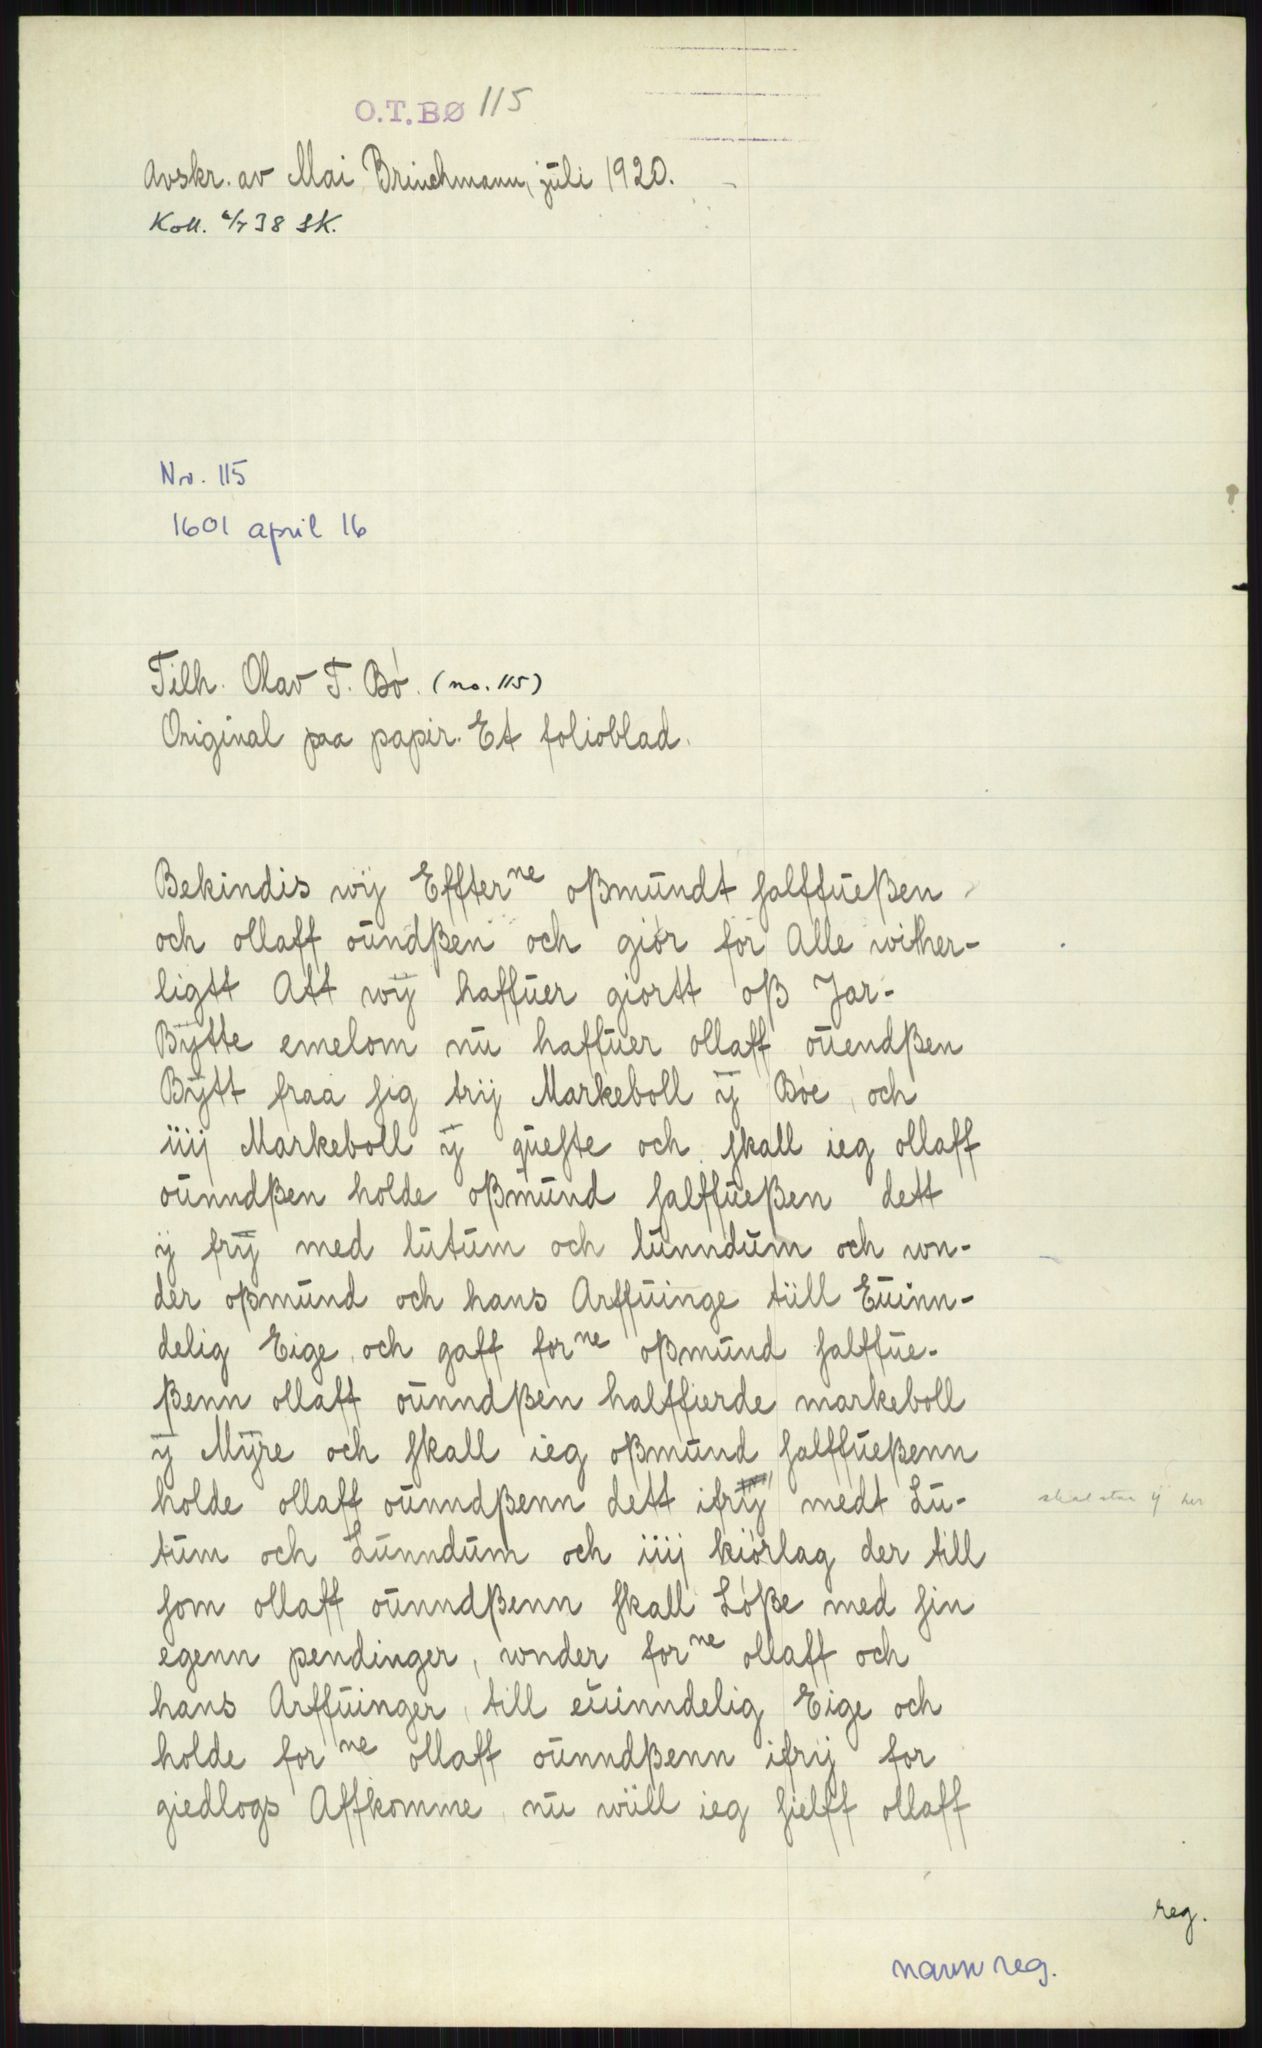 O.T.BØ 115
Avskr. av Mai Brinchmann, juli 1920.
Koll. 4/7 38 SK.
Nr. 115
1601 april 16
Tilh. Olav T. Bø. (no. 115)
Original paa papir. Et folioblad.
Bekindis wij Effterne oßmundt salffueßen
och ollaff oundßen och giör for Alle wither-
ligtt Att wij haffuer giortt oß Jor-
Bÿtte emelom nu haffuer ollaff ouendßen
Bÿtt fraa sig trij Markeboll ÿ Böe, och
iiij Markeboll ÿ queste och skall ieg ollaff
ounndßen holde oßmund salffueßen dett
ÿ frij med lutum och lunndum och wn-
der oßmund och hans Arffuinge tiill Euinn-
delig Eige, och gaff forne oßmund salffue-
ßenn ollaff ounndßen halffierde markeboll
ÿ Mÿre och skall ieg oßmund salffueßenn
holde ollaff ounndßenn dett ifrÿ medt Lu-
skal staa ij her
tum och Lunndum och iiij kiörlag der till
som ollaff ounndßenn skall Lößе med sin
egenn pendinger, wnder forne ollaff och
hans Arffuinger, till euinndelig Eige och
holde forne ollaff ounndßenn ifrij for
giedlogs Affkomme, nu wiill ieg sielff ollaff
reg.
navn reg.